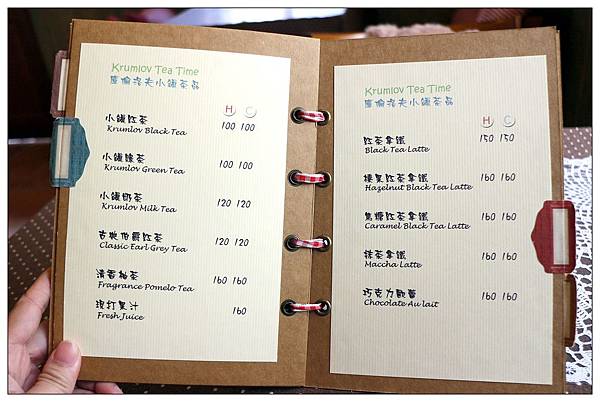 Krumlov Tea Time
庫倫洛夫小鎮茶品
H C
小鎮紅茶 100 100
Krumlov Black Tea
小鎮綠茶 100 100
Krumlov Green Tea
小鎮奶茶 120 120
Krumlov Milk Tea
古典伯爵紅茶 120 120
Classic Earl Grey Tea
清香柚茶 160 160
Fragrance Pomelo Tea
現打果汁 160
Fresh Juice
Krumlov Tea Time
庫倫洛夫小鎮茶品
H C
紅茶拿鐵 150 150
Black Tea Latte
榛果紅茶拿鐵 160 160
Hazelnut Black Tea Latte
焦糖紅茶拿鐵 160 160
Caramel Black Tea Latte
抹茶拿鐵 160 160
Maccha Latte
巧克力歐蕾 160 160
Chocolate Au lait